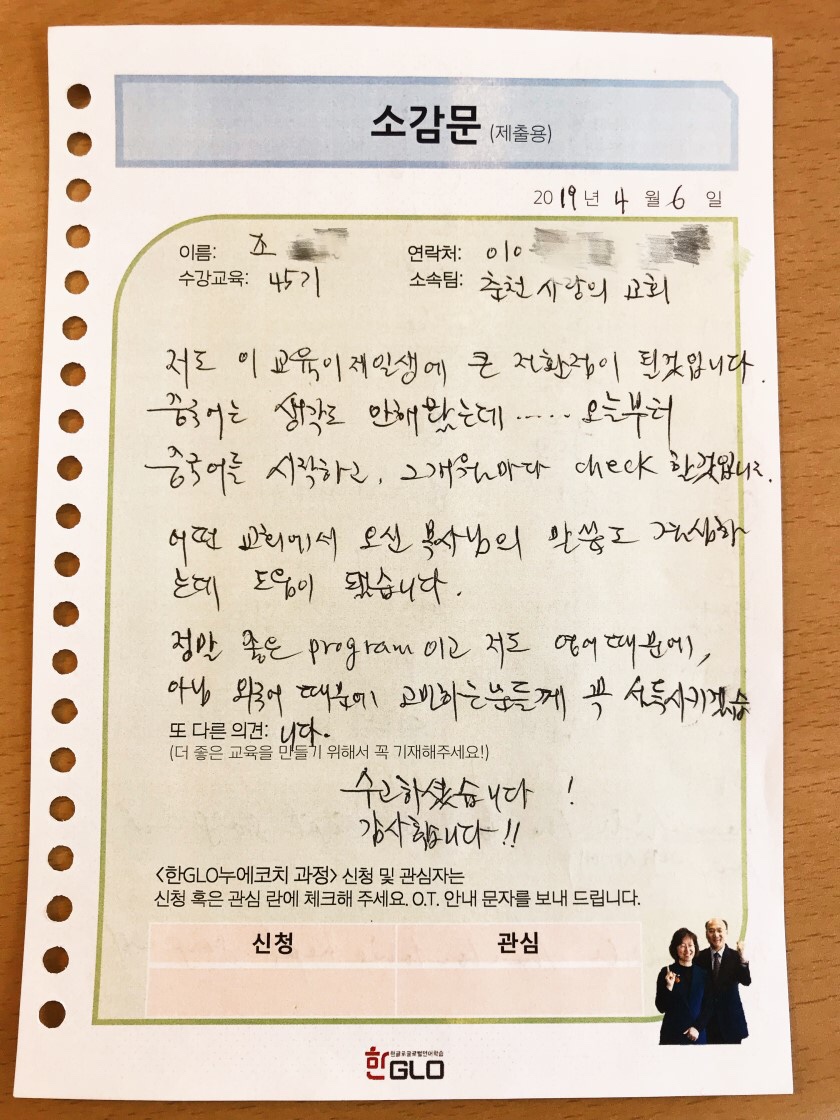 소감문 (제출용)
2019년 4월 6일
이름: 조
연락처: 010
수강교육: 45기
소속팀: 춘천 사랑의 교회
저도 이 교육이 제일생에 큰 전환점이 될것입니다.
중국어는 생각도 안해봤는데 ..... 오늘부터
중국어를 시작하고, 2개월마다 check 할것입니다.
어떤 교회에서 오신 목사님의 말씀도 결심하
는데 도움이 됐습니다.
정말 좋은 program이고 저도 영어때문에,
아님 외국어 때문에 고민하는분들께 꼭 설득시키겠습
또 다른 의견: 니다.
(더 좋은 교육을 만들기 위해서 꼭 기재해주세요!)
수고하셨습니다 !
감사합니다!!
<한GLO누에코치 과정> 신청 및 관심자는
신청 혹은 관심 란에 체크해 주세요. O.T. 안내 문자를 보내 드립니다.
신청 관심
한글로글로벌언어학습
한GLO